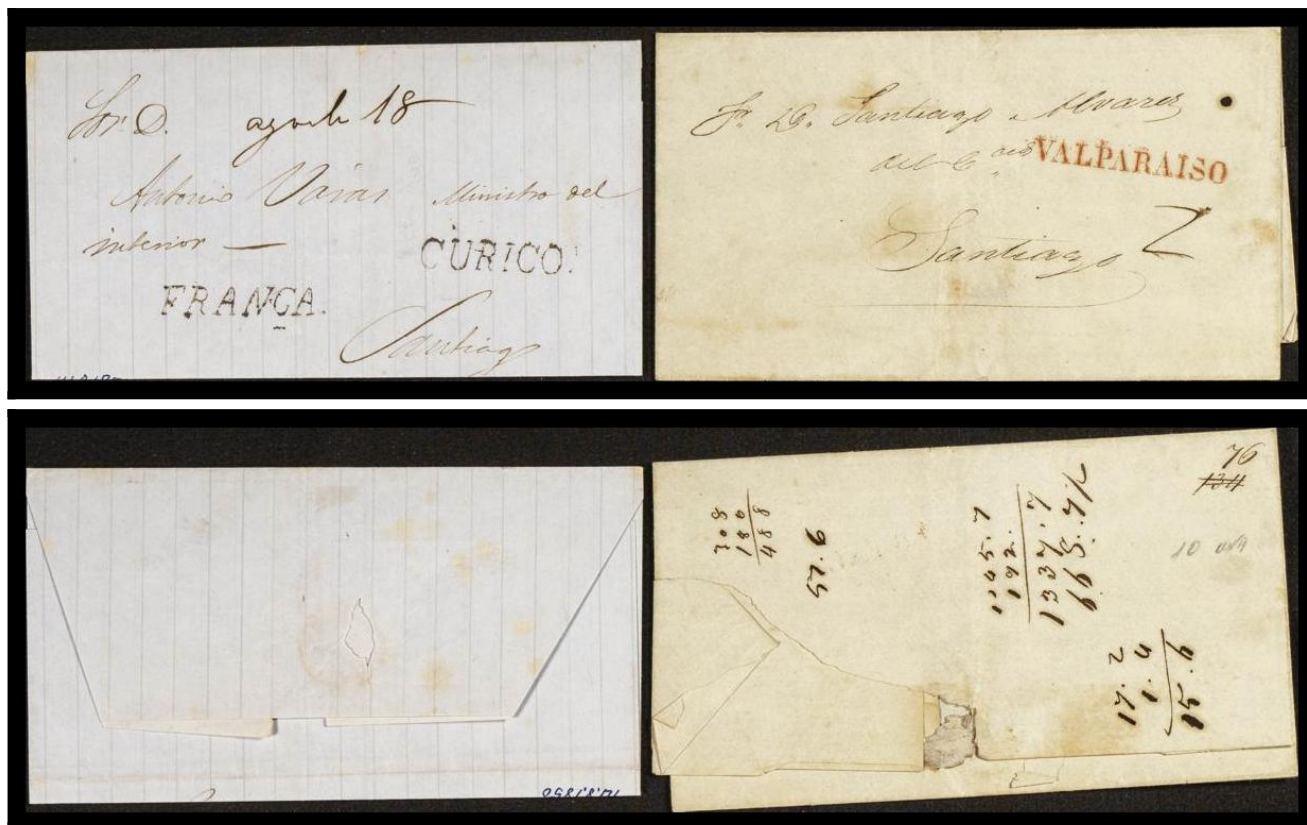 Sor. D. agosto 18
Antonio Varas Ministro del
interior —
CURICO.
FRANCA.
Santiago
Sr. D. Santiago Alvarez
del Cio
VALPARAISO
Santiago 2
14.8.1850
308
180
488
57.6
1145.7
192.
1337.7
668.7½
17.2
1.4
15.6
76
134
10